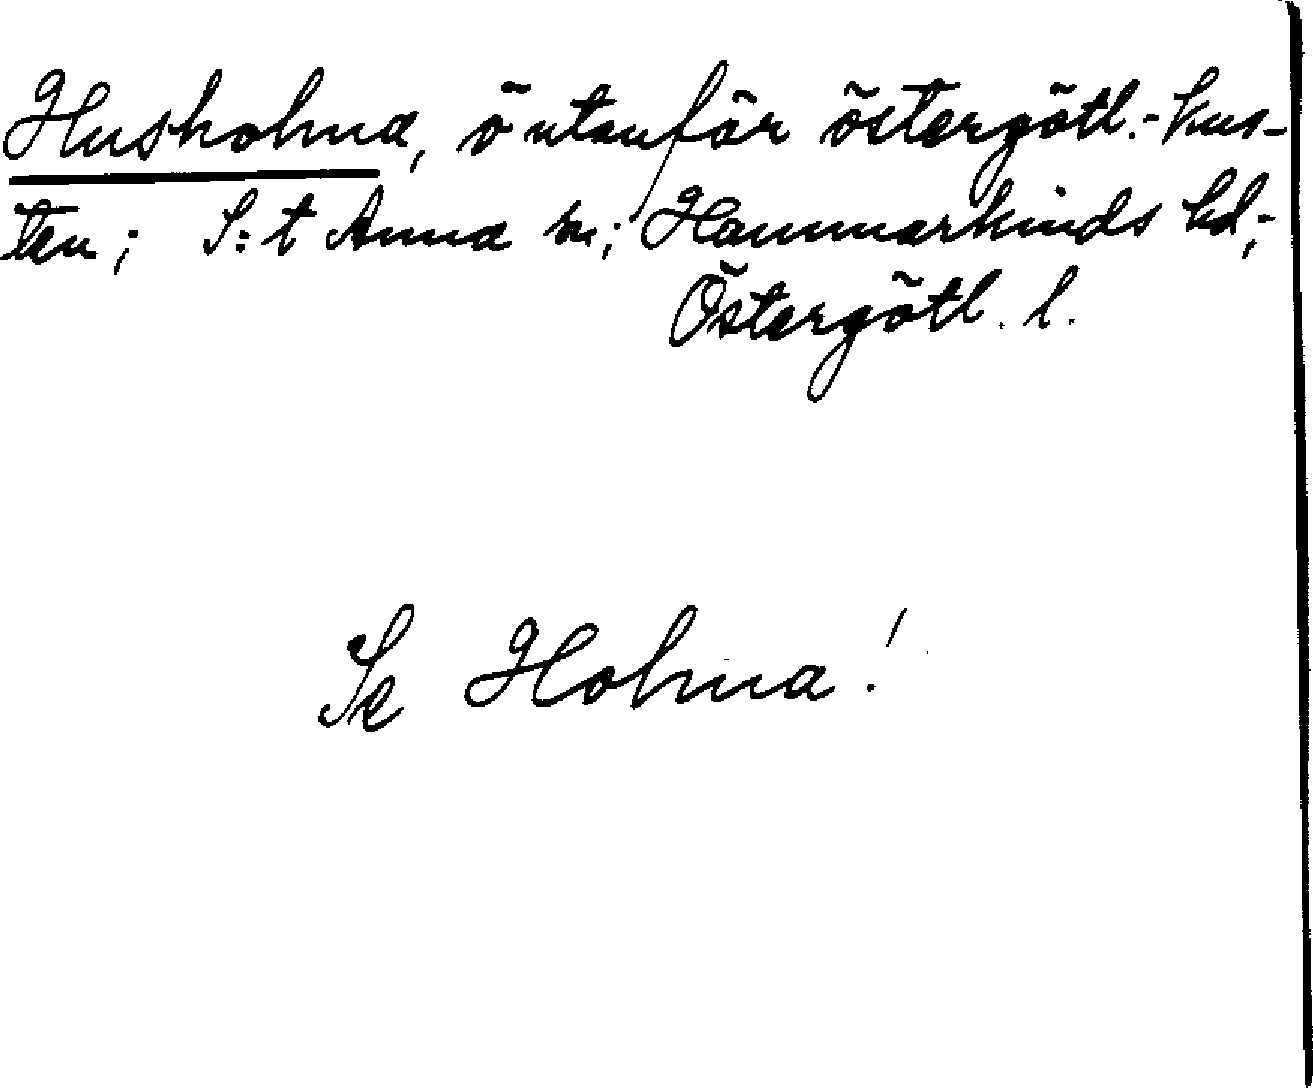 Husholma, ö utanför östergötl.-kus-
ten; S:t Anna sn; Hammarkinds hd;
Östergötl. l.
Se Holma!